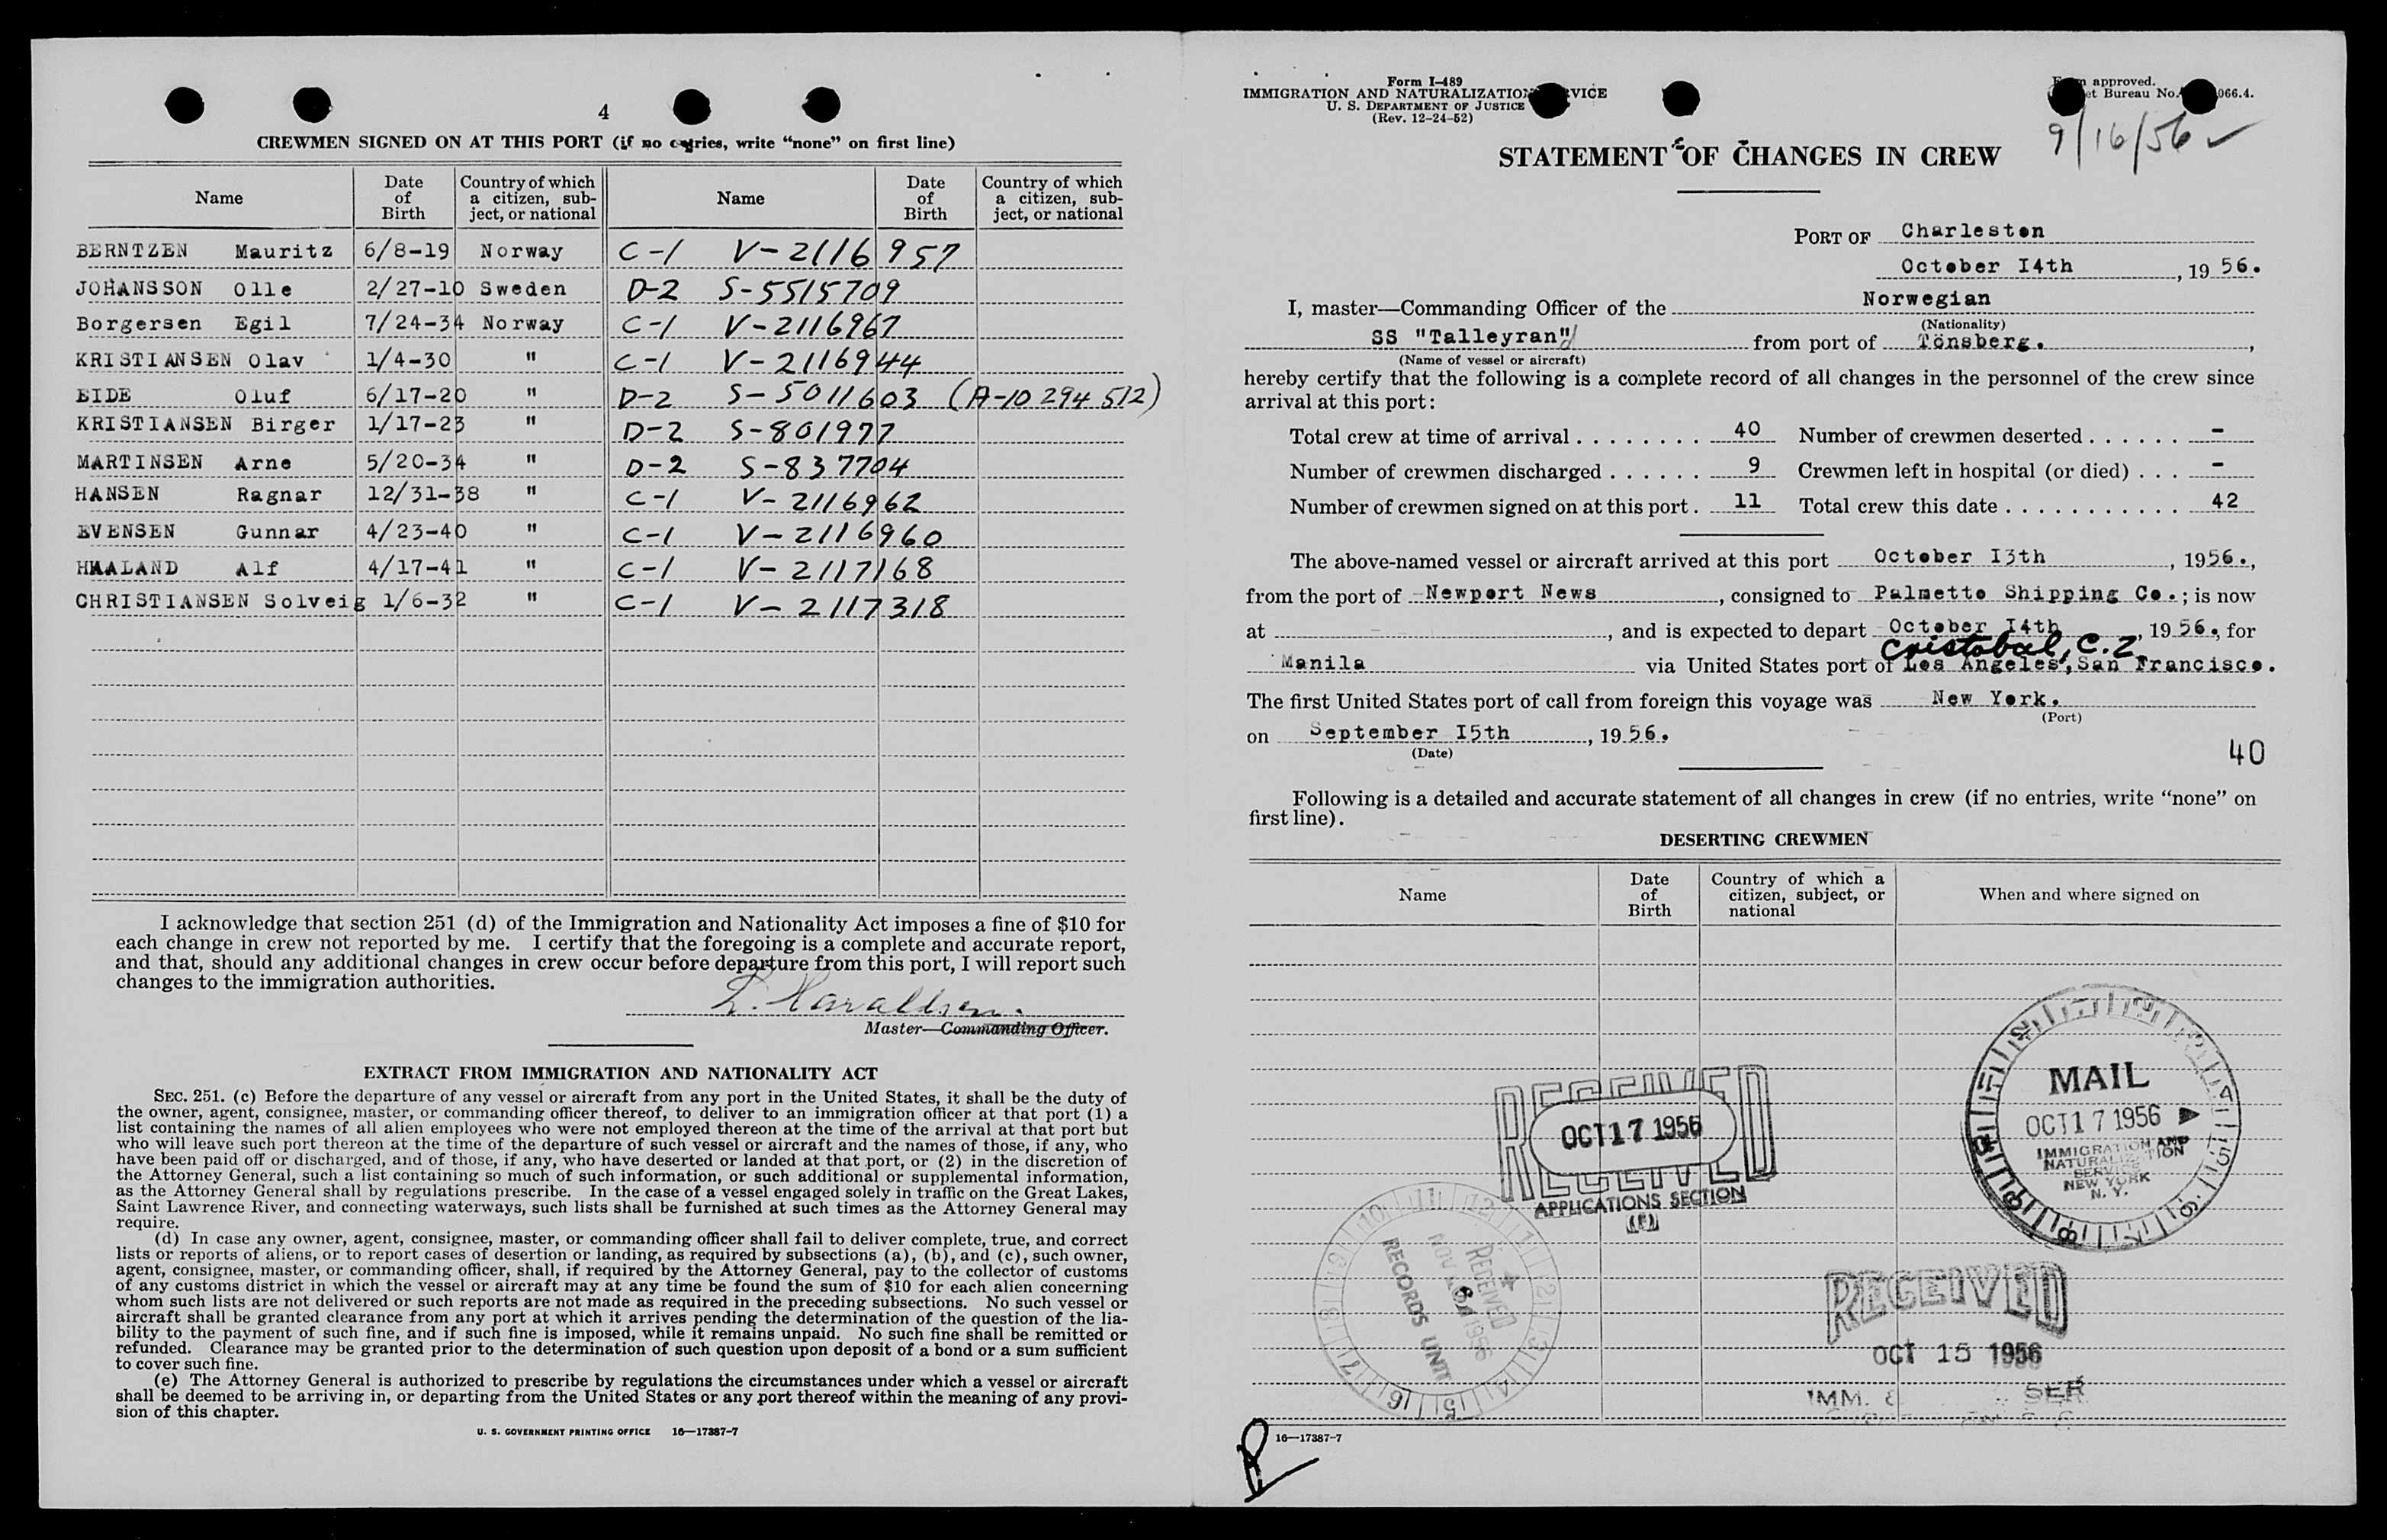 4
CREWMEN SIGNED ON AT THIS PORT (if no entries, write "none" on first line)
Name Date of Birth Country of which a citizen, subject, or national Name Date of Birth Country of which a citizen, subject, or national
BERNTZEN Mauritz 6/8-19 Norway C-1 V-2116957
JOHANSSON Olle 2/27-10 Sweden D-2 S-5515709
Borgersen Egil 7/24-34 Norway C-1 V-2116967
KRISTIANSEN Olav 1/4-30 " C-1 V-2116944
EIDE Oluf 6/17-20 " D-2 S-5011603 (A-10 294 512)
KRISTIANSEN Birger 1/17-23 " D-2 S-801977
MARTINSEN Arne 5/20-34 " D-2 S-837704
HANSEN Ragnar 12/31-38 " C-1 V-2116962
EVENSEN Gunnar 4/23-40 " C-1 V-2116960
HAALAND Alf 4/17-41 " C-1 V-2117168
CHRISTIANSEN Solveig 1/6-32 " C-1 V-2117318
I acknowledge that section 251 (d) of the Immigration and Nationality Act imposes a fine of $10 for
each change in crew not reported by me. I certify that the foregoing is a complete and accurate report,
and that, should any additional changes in crew occur before departure from this port, I will report such
changes to the immigration authorities.
Master—Commanding Officer.
EXTRACT FROM IMMIGRATION AND NATIONALITY ACT
SEC. 251. (c) Before the departure of any vessel or aircraft from any port in the United States, it shall be the duty of
the owner, agent, consignee, master, or commanding officer thereof, to deliver to an immigration officer at that port (1) a
list containing the names of all alien employees who were not employed thereon at the time of the arrival at that port but
who will leave such port thereon at the time of the departure of such vessel or aircraft and the names of those, if any, who
have been paid off or discharged, and of those, if any, who have deserted or landed at that port, or (2) in the discretion of
the Attorney General, such a list containing so much of such information, or such additional or supplemental information,
as the Attorney General shall by regulations prescribe. In the case of a vessel engaged solely in traffic on the Great Lakes,
Saint Lawrence River, and connecting waterways, such lists shall be furnished at such times as the Attorney General may
require.
(d) In case any owner, agent, consignee, master, or commanding officer shall fail to deliver complete, true, and correct
lists or reports of aliens, or to report cases of desertion or landing, as required by subsections (a), (b), and (c), such owner,
agent, consignee, master, or commanding officer, shall, if required by the Attorney General, pay to the collector of customs
of any customs district in which the vessel or aircraft may at any time be found the sum of $10 for each alien concerning
whom such lists are not delivered or such reports are not made as required in the preceding subsections. No such vessel or
aircraft shall be granted clearance from any port at which it arrives pending the determination of the question of the lia-
bility to the payment of such fine, and if such fine is imposed, while it remains unpaid. No such fine shall be remitted or
refunded. Clearance may be granted prior to the determination of such question upon deposit of a bond or a sum sufficient
to cover such fine.
(e) The Attorney General is authorized to prescribe by regulations the circumstances under which a vessel or aircraft
shall be deemed to be arriving in, or departing from the United States or any port thereof within the meaning of any provi-
sion of this chapter.
U. S. GOVERNMENT PRINTING OFFICE 16—17387-7
Form I-489
IMMIGRATION AND NATURALIZATION SERVICE
U. S. DEPARTMENT OF JUSTICE
(Rev. 12-24-52)
approved.
Bureau No. 066.4.
9/16/56
STATEMENT OF CHANGES IN CREW
PORT OF Charleston
October I4th, 1956.
I, master—Commanding Officer of the Norwegian
(Nationality)
SS "Talleyran" from port of Tönsberg.,
(Name of vessel or aircraft)
hereby certify that the following is a complete record of all changes in the personnel of the crew since
arrival at this port:
Total crew at time of arrival 40 Number of crewmen deserted -
Number of crewmen discharged 9 Crewmen left in hospital (or died) -
Number of crewmen signed on at this port. 11 Total crew this date 42
The above-named vessel or aircraft arrived at this port October I3th, 1956.,
from the port of Newport News, consigned to Palmetto Shipping Co.; is now
at -, and is expected to depart October I4th, 1956., for
Cristobal, C.Z.
Manila via United States port of Los Angeles, San Francisco.
The first United States port of call from foreign this voyage was New York.
(Port)
on September I5th, 1956.
(Date)
40
Following is a detailed and accurate statement of all changes in crew (if no entries, write "none" on
first line).
DESERTING CREWMEN
Name Date of Birth Country of which a citizen, subject, or national When and where signed on
RECEIVED
OCT 17 1956
APPLICATIONS SECTION
MAIL
OCT 17 1956
IMMIGRATION AND
NATURALIZATION
SERVICE
NEW YORK
N. Y.
RECEIVED
NOV 1956
RECORDS UNIT
RECEIVED
OCT 15 1956
IMM. & SER
16—17387-7